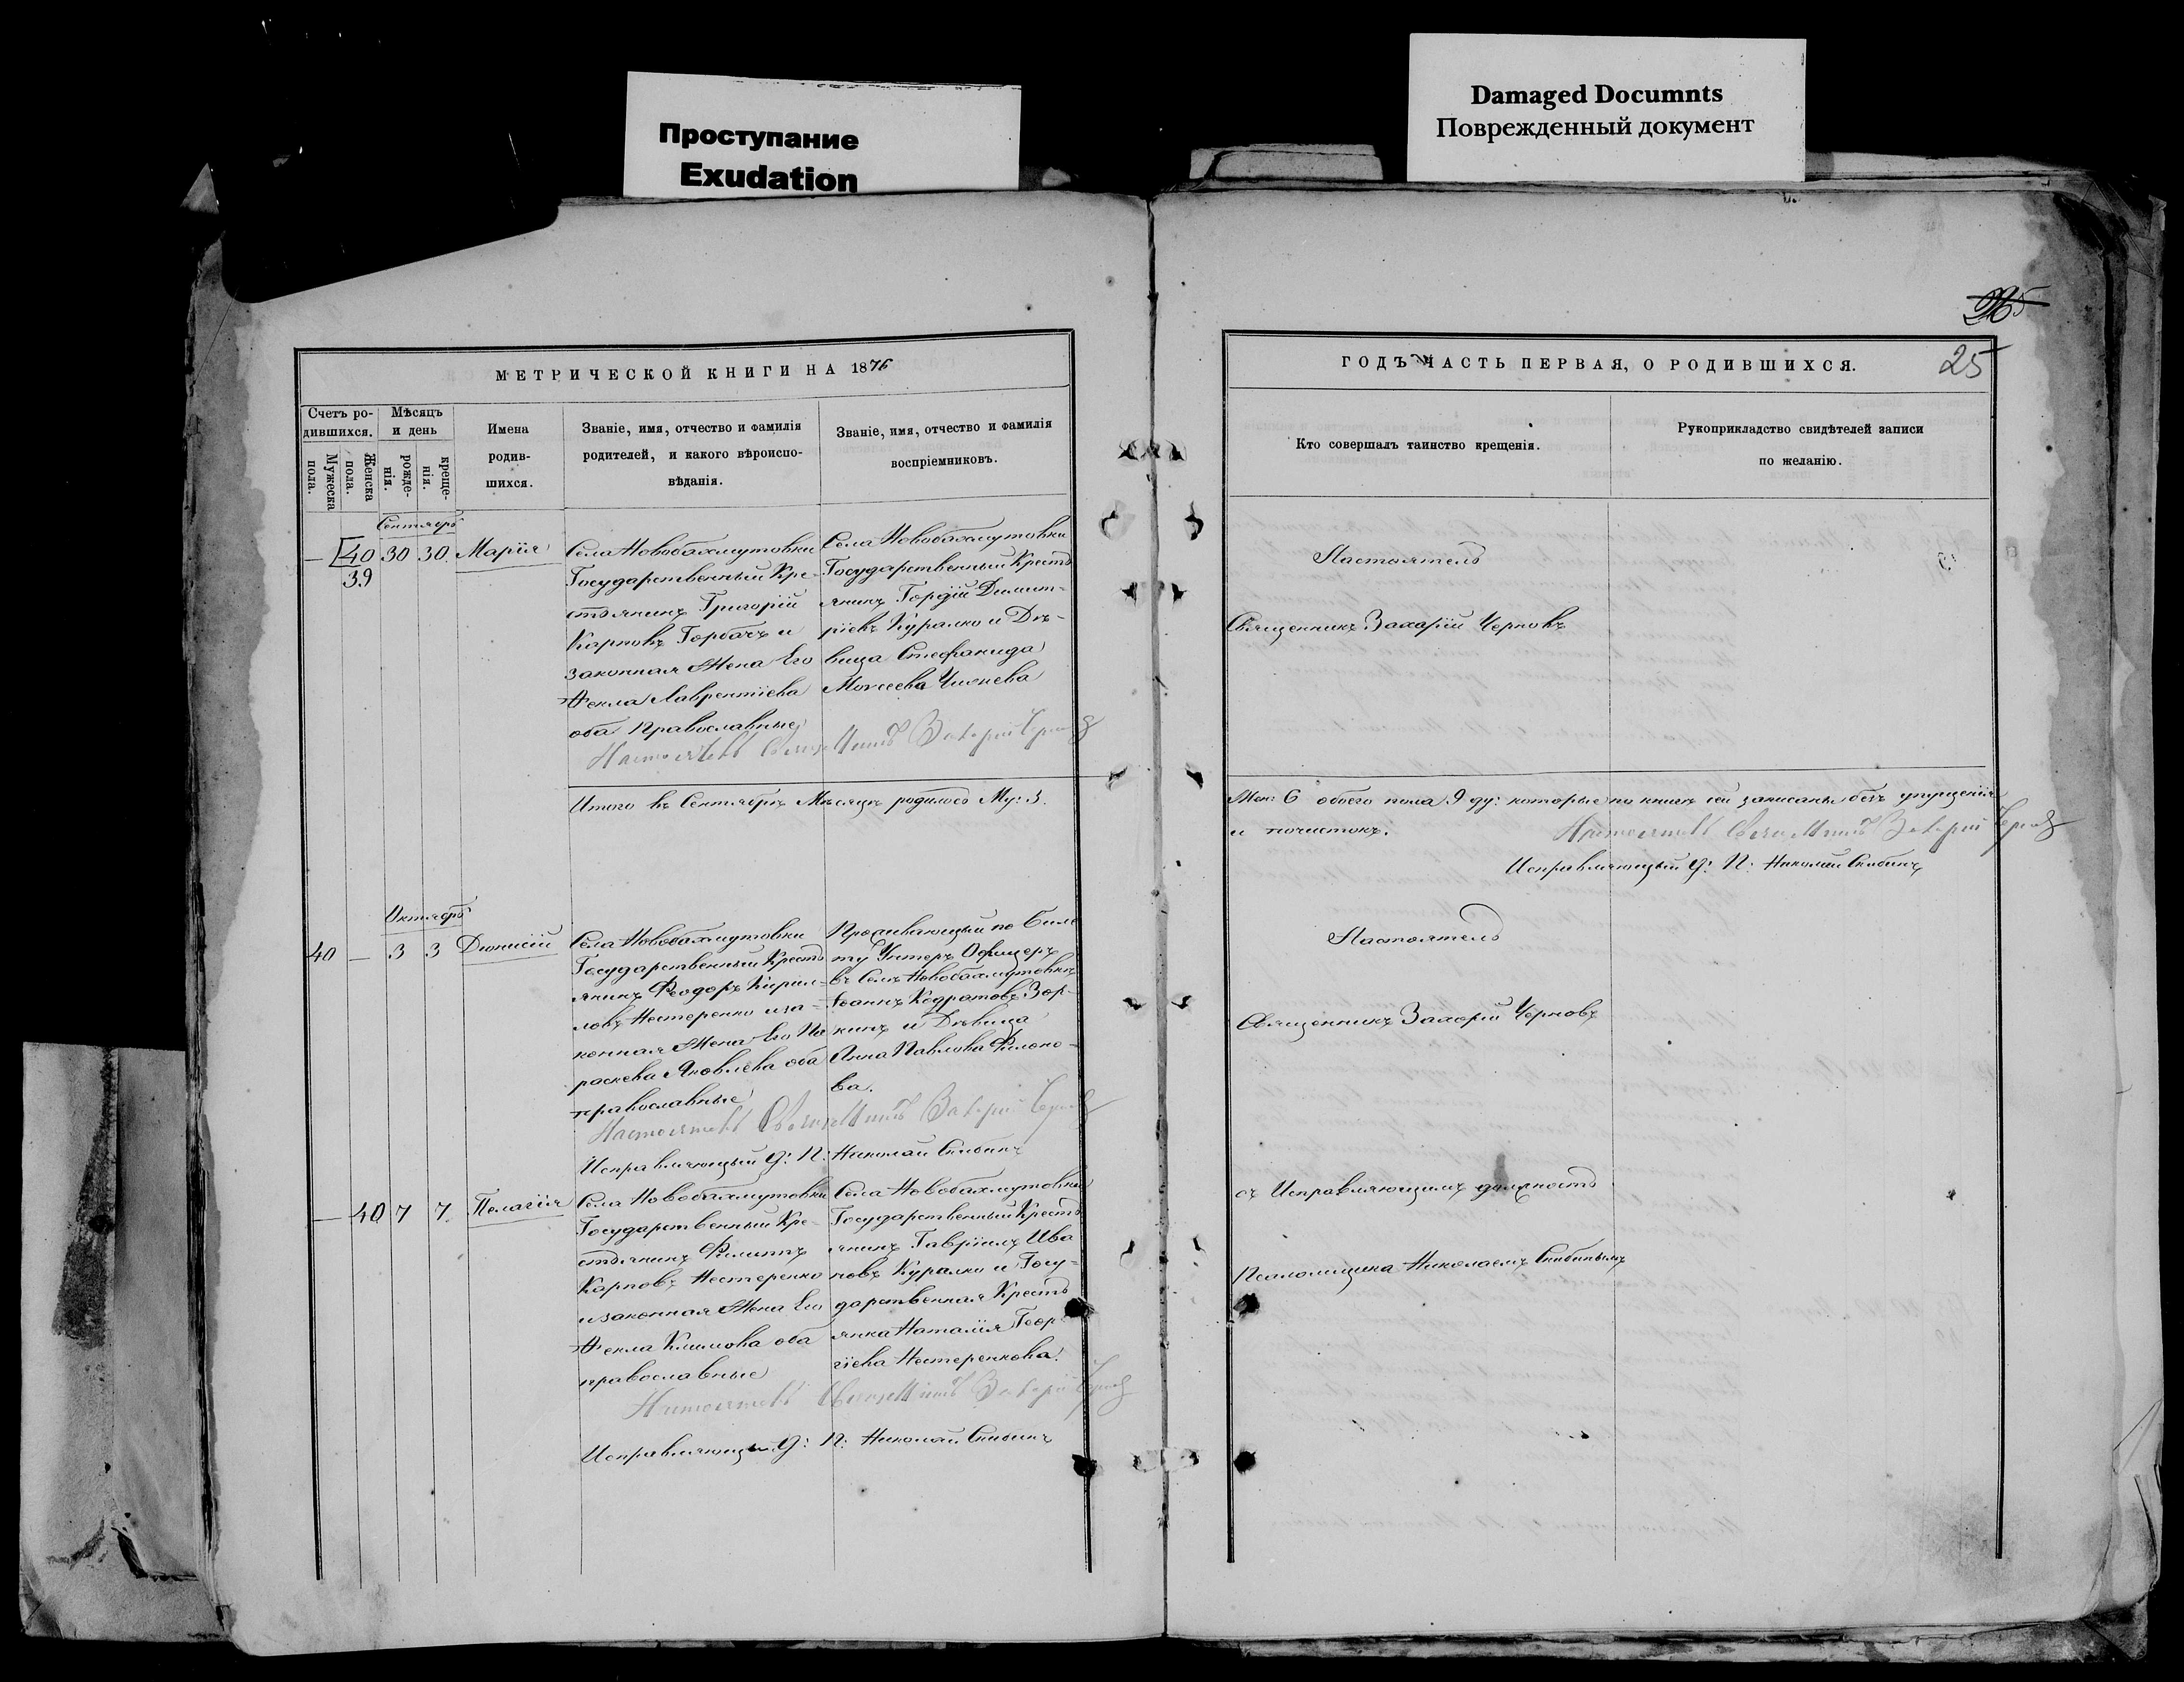 Проступание
Exudation
Damaged Documnts
Поврежденный документ
25
МЕТРИЧЕСКОЙ КНИГИ НА 1876
Счетъ ро-
дившихся.
Мужеска
пола.
Женска
пола.
Мѣсяцъ
и день
рожде-
нія.
креще-
нія.
Имена
родив-
шихся.
Званіе, имя, отчество и фамилія
родителей, и какого вѣроиспо-
вѣданія.
Званіе, имя, отчество и фамилія
воспріемниковъ.
Сентябрь
— 40 30 30 Марія
39
Села Новобахмутовки
Государственный Кре-
стьянинъ Григорій
Карповъ Горбачъ и
законная Жена Его
Фекла Лаврентіева
оба Православные
Села Новобахмутовки
Государственный Кресть
янинъ Гордій Димит-
ріевъ Куралко и Дѣ-
вица Стефанида
Моисеева
Настоятель Священникъ Захарій Черновъ
Итого въ Сентябрѣ Мѣсяцѣ родилось Му: 3.
Октябрь
40 — 3 3 Діонисій
Села Новобахмутовки
Государственный Кресть
янинъ Феодоръ Кирил-
ловъ Нестеренко и за-
конная Жена Его Па
раскева Яковлева оба
православные
Проживающій по биле
ту Унтеръ Офицеръ
въ Селѣ Новобахмутовкѣ
Іоаннъ Кодратовъ Зор-
кинъ и Дѣвица
Анна Павлова Филоно-
ва.
Настоятель Священникъ Захарій Черновъ
Исправляющій д: П: Николай Скибинъ
— 40 7 7 Пелагія
Села Новобахмутовки
Государственный Кре-
стьянинъ Филиппъ
Карповъ Нестеренко
и законная Жена Его
Фекла Климова оба
православные
Села Новобахмутовки
Государственный Кресть
янинъ Гавріилъ Ива
новъ Куралко и Госу-
дарственная Кресть
янка Наталія Геор-
гіева Нестеренкова.
Настоятель Священникъ Захарій Черновъ
Исправляющій д: П: Николай Скибинъ
ГОДЪ ЧАСТЬ ПЕРВАЯ, О РОДИВШИХСЯ.
25
Кто совершалъ таинство крещенія.
Рукоприкладство свидѣтелей записи
по желанію.
Настоятель
Священникъ Захарій Черновъ
Жен: 6 обоего пола 9 ду: которые по книгѣ сей записаны безъ упущенія
и почистокъ.
Настоятель Священникъ Захарій Черновъ
Исправляющій д: П: Николай Скибинъ
Настоятель
Священникъ Захарій Черновъ
съ Исправляющимъ должность
Псаломщика Николаемъ Скибинымъ